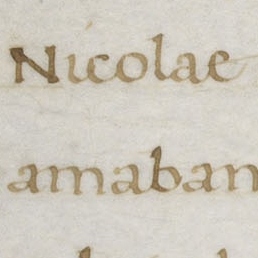 Nicolae
amaban